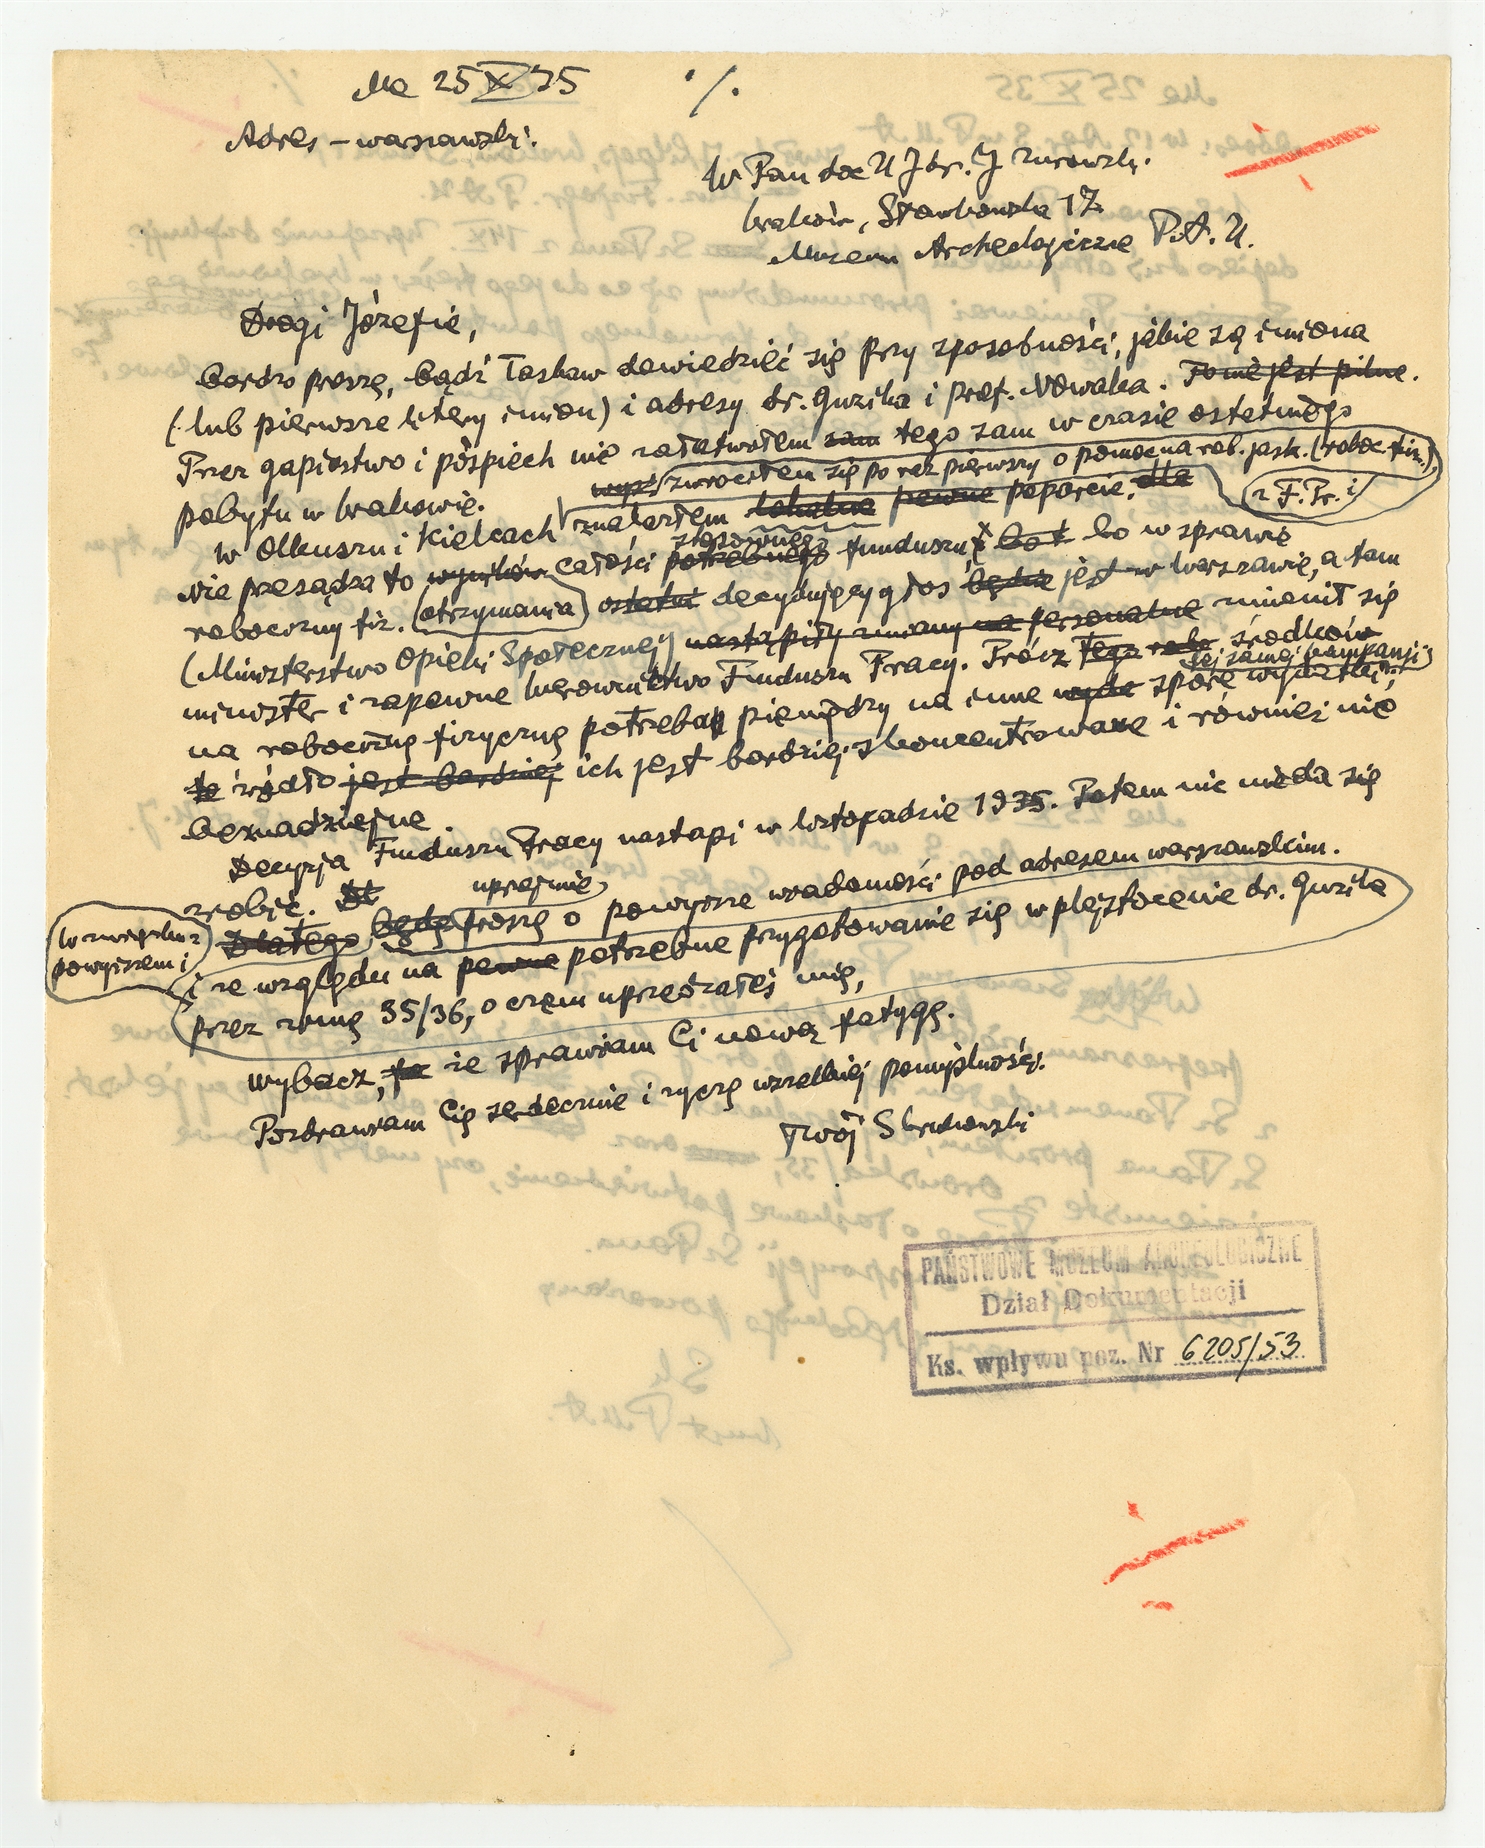 Me 25 X 35
·/.
Adres – warszawski.
W Pan doc U J dr. J Żurowski.
Kraków, Sławkowska 17
Muzeum Archeologiczne P.A.U.
Drogi Józefie,
bardzo proszę, bądź łaskaw dowiedzieć się przy sposobności, jakie są imiona
(lub pierwsze litery imion) i adresy dr. Guzika i prof. Nowaka. To nie jest pilne.
Przez gapiostwo i pośpiech nie załatwiłem sam tego sam w czasie ostatniego
pobytu w Krakowie.
zwróciłem się po raz pierwszy o pomoc na rob. jask. (roboc. fiz.),
W Olkuszu i Kielcach znalazłem lokalne pewne poparcie, dla
z F. Pr. i
stosownego
Nie przesądza to wyników całości potrzebnego funduszu, bo w sprawie
robocizny fiz. (otrzymania) ostatni decydujący głos będzie jest w Warszawie, a tam
(Ministerstwo Opieki Społecznej) nastąpiły zmiany na personalne zmienił się
minister i zapewne kierownictwo Funduszu Pracy. Prócz tego robo środków
tej samej kampanji
na robociznę fizyczną potrzeba pieniędzy na inne wyda spore wydatki;
te źródło jest bardziej ich jest bardziej skoncentrowane i również nie
beznadziejne.
Decyzja Funduszu Pracy nastąpi w listopadzie 1935. Potem nic nie da się
zrobić.
uprzejmie
W związku z
powyższem i
Dlatego, będę proszę o powyższe wiadomości pod adresem warszawskim.
i ze względu na pewne potrzebne przygotowanie się w plejstocenie dr. Guzika
przez zimę 35/36, o czem uprzedzałeś mię,
Wybacz, że sprawiam Ci nową fatygę.
Pozdrawiam Cię serdecznie i życzę wszelkiej pomyślności.
Twój S Krukowski
PAŃSTWOWE MUZEUM ARCHEOLOGICZNE
Dział Dokumentacji
Ks. wpływu poz. Nr 6205/53